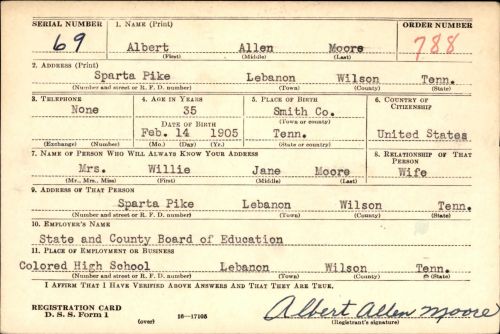 SERIAL NUMBER 1. NAME (Print) ORDER NUMBER
69 Albert Allen Moore 788
(First) (Middle) (Last)
2. ADDRESS (Print)
Sparta Pike Lebanon Wilson Tenn.
(Number and street or R. F. D. number) (Town) (County) (State)
3. TELEPHONE 4. AGE IN YEARS 5. PLACE OF BIRTH 6. COUNTRY OF CITIZENSHIP
None 35 Smith Co.
DATE OF BIRTH (Town or county)
Feb. 14 1905 Tenn. United States
(Exchange) (Number) (Mo.) (Day) (Yr.) (State or country)
7. NAME OF PERSON WHO WILL ALWAYS KNOW YOUR ADDRESS 8. RELATIONSHIP OF THAT PERSON
Mrs. Willie Jane Moore Wife
(Mr., Mrs., Miss) (First) (Middle) (Last)
9. ADDRESS OF THAT PERSON
Sparta Pike Lebanon Wilson Tenn.
(Number and street or R. F. D. number) (Town) (County) (State)
10. EMPLOYER'S NAME
State and County Board of Education
11. PLACE OF EMPLOYMENT OR BUSINESS
Colored High School Lebanon Wilson Tenn.
(Number and street or R. F. D. number) (Town) (County) (State)
I AFFIRM THAT I HAVE VERIFIED ABOVE ANSWERS AND THAT THEY ARE TRUE.
REGISTRATION CARD
D. S. S. Form 1 (over) 16—17105 Albert Allen Moore
(Registrant's signature)